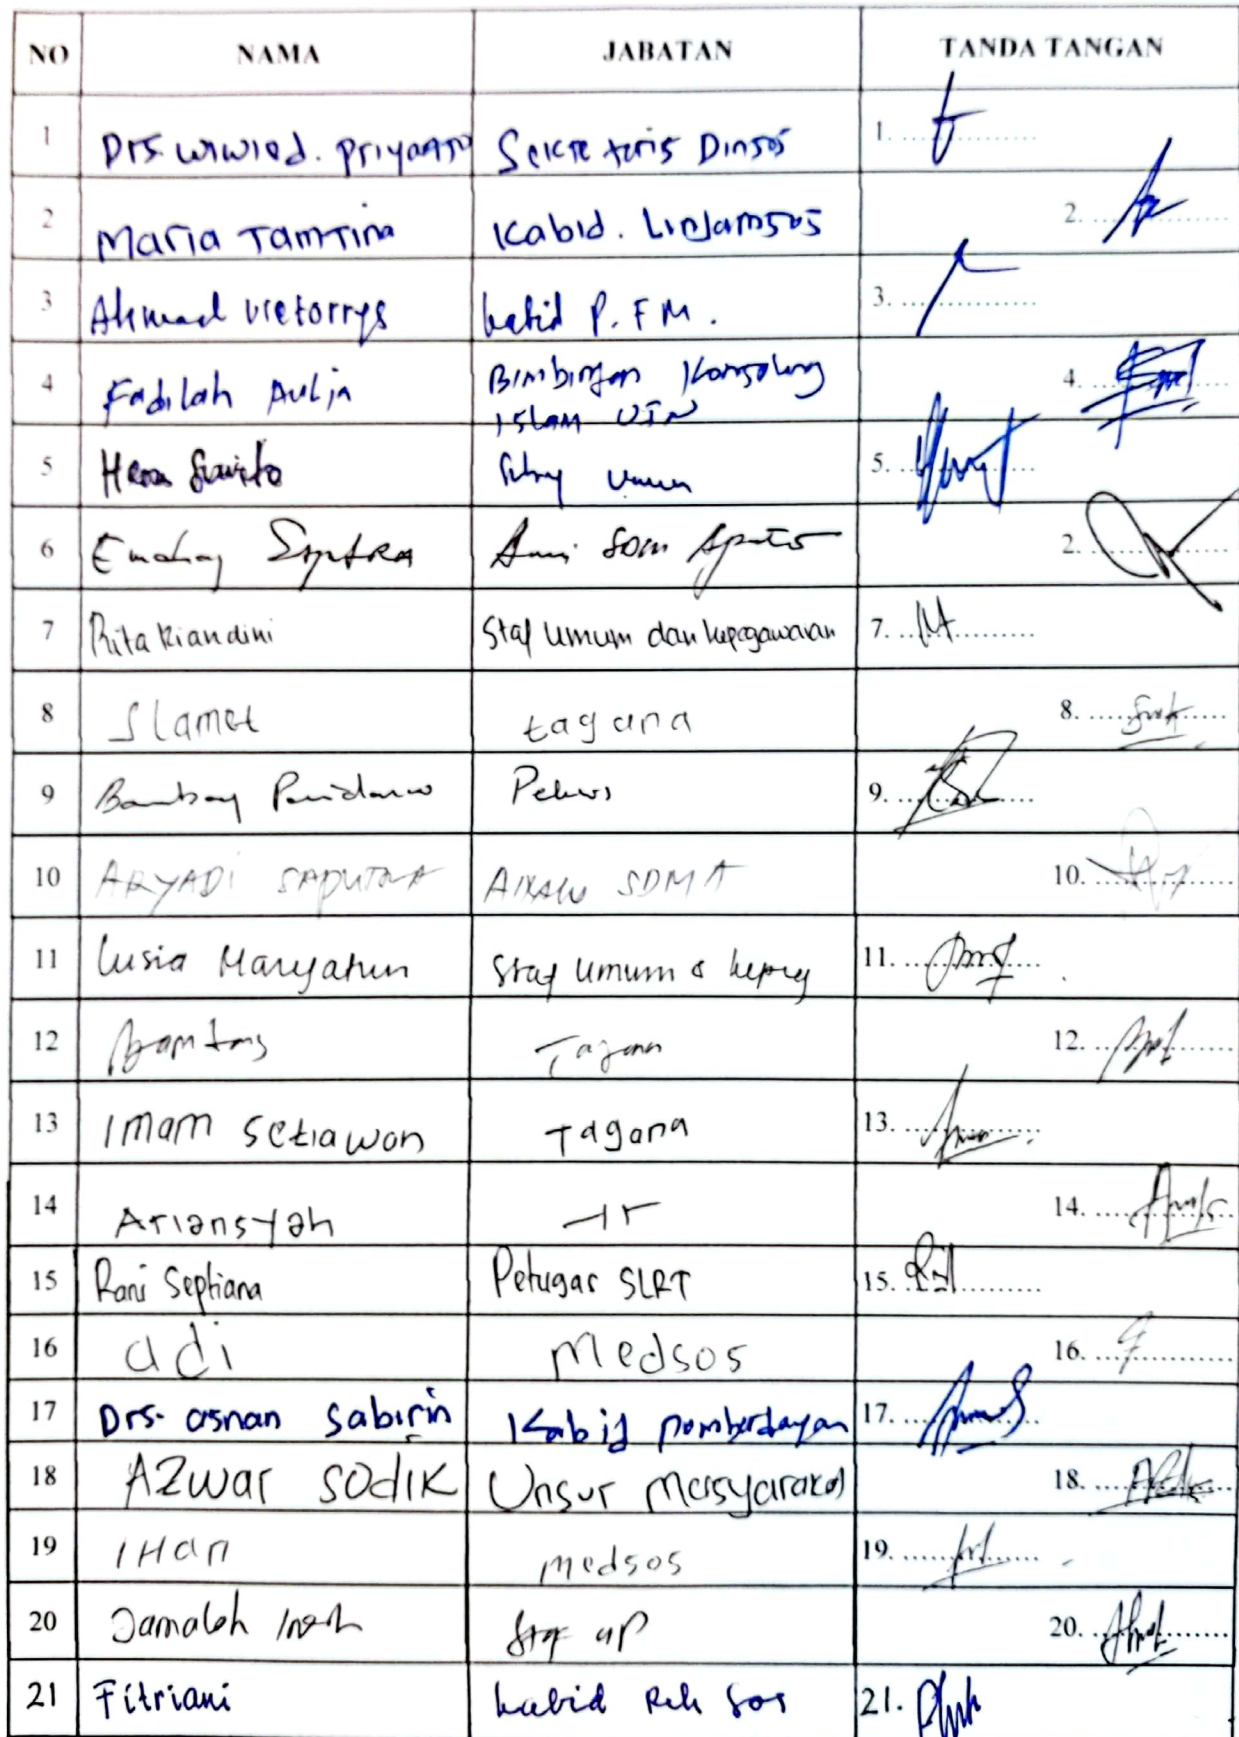 NO NAMA JABATAN TANDA TANGAN
1 Drs. Wiwied. Priyanto Sekretaris Dinsos 1. ....................
2 Maria Tamtina Kabid. Linjamsos 2. ....................
3 Ahmad Vietorrys kabid P.F.M. 3. ....................
4 Fadilah Aulia Bimbingan Konseling 4. ....................
Islam UIN
5 5. ....................
6 Saputra 2. ....................
7 Rita Riandini Staf Umum dan kepegawaian 7. ....................
8 Slamet tagana 8. ....................
9 Bambang Peksos 9. ....................
10 ARYADI SAPUTRA SDMA 10. ....................
11 Lusia Maryatun Staf Umum & kepeg 11. ....................
12 Tagana 12. ....................
13 Imam Setiawan Tagana 13. ....................
14 Ariansyah 14. ....................
15 Rani Septiana Petugas SLRT 15. ....................
16 adi Medsos 16. ....................
17 Drs. asnan sabirin Kabid pemberdayan 17. ....................
18 AZwar SODIK Unsur Masyarakat 18. ....................
19 IHan medsos 19. ....................
20 Jamalah 20. ....................
21 Fitriani kabid Reh Sos 21.